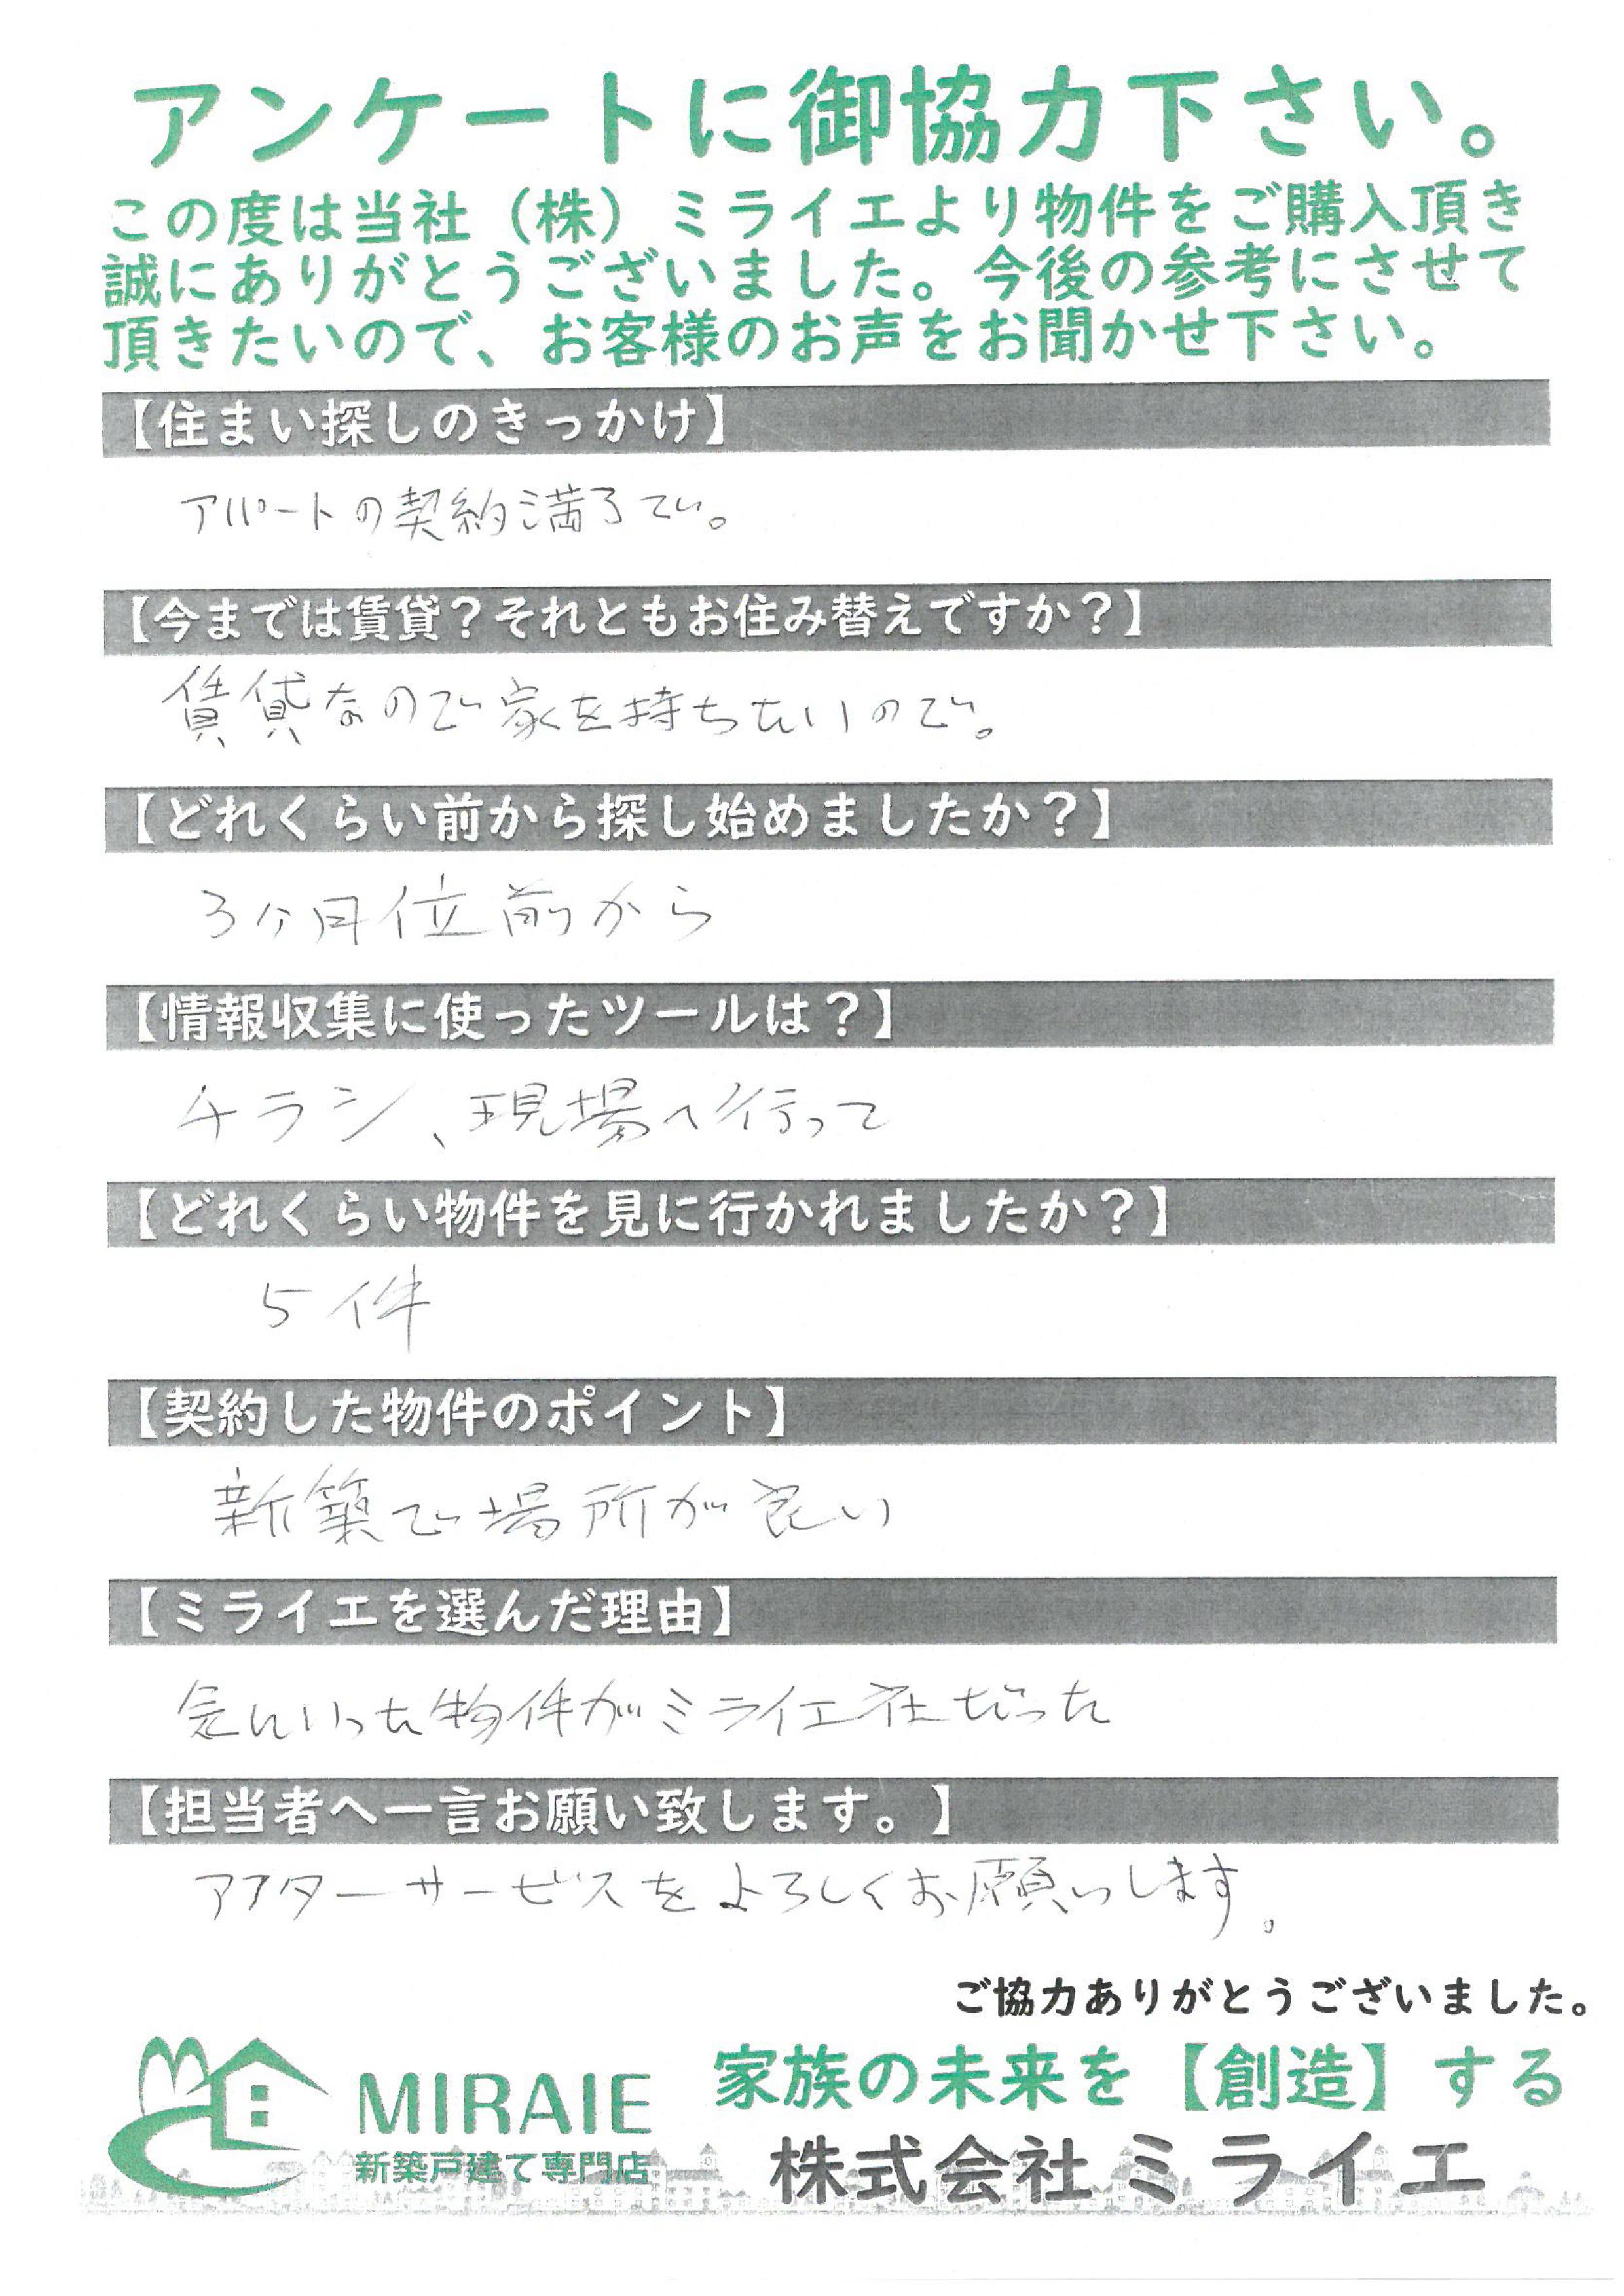 アンケートに御協力下さい。
この度は当社（株）ミライエより物件をご購入頂き
誠にありがとうございました。今後の参考にさせて
頂きたいので、お客様のお声をお聞かせ下さい。
【住まい探しのきっかけ】
アパートの契約満了で。
【今までは賃貸？それともお住み替えですか？】
賃貸なので家を持ちたいので。
【どれくらい前から探し始めましたか？】
3ヶ月位前から
【情報収集に使ったツールは？】
チラシ、現場へ行って
【どれくらい物件を見に行かれましたか？】
5件
【契約した物件のポイント】
新築で場所が良い
【ミライエを選んだ理由】
気にいった物件がミライエ社だった
【担当者へ一言お願い致します。】
アフターサービスをよろしくお願いします。
ご協力ありがとうございました。
MIRAIE
新築戸建て専門店
家族の未来を【創造】する
株式会社ミライエ